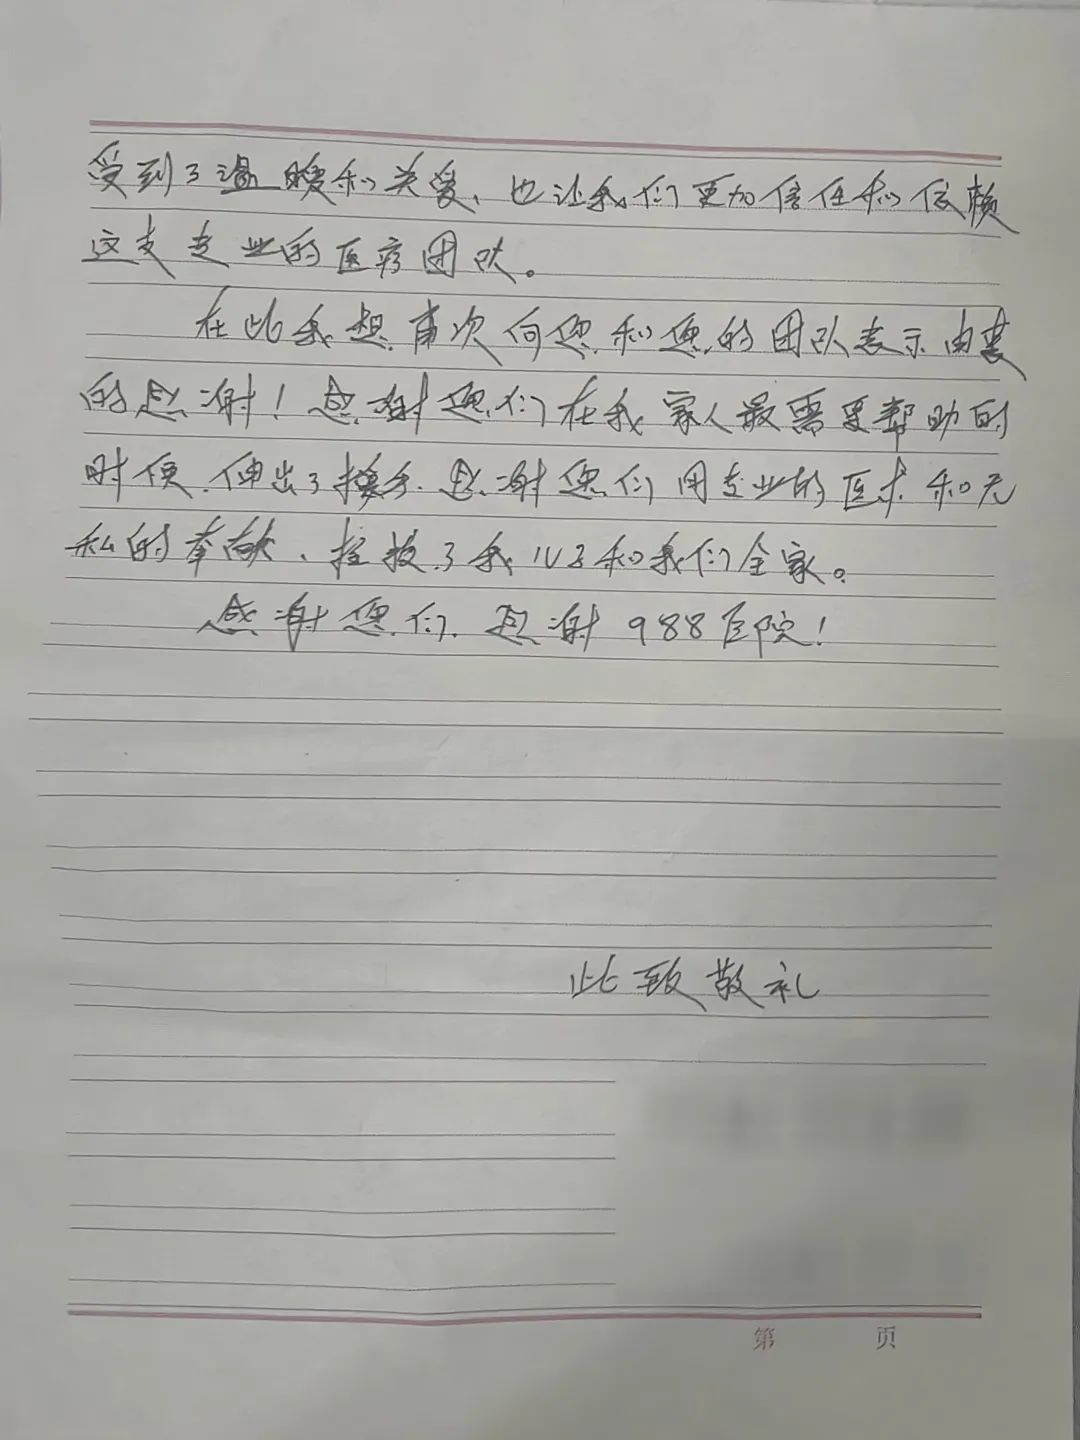 受到了温暖和关爱、也让我们更加信任和依赖
这支专业的医疗团队。
在此我想再次向您和您的团队表示由衷
的感谢！感谢您们在我家人最需要帮助的
时候.伸出了援手.感谢您们用专业的医术和无
私的奉献、拯救了我儿子和我们全家。
感谢您们.感谢988医院！
此致敬礼
第 页